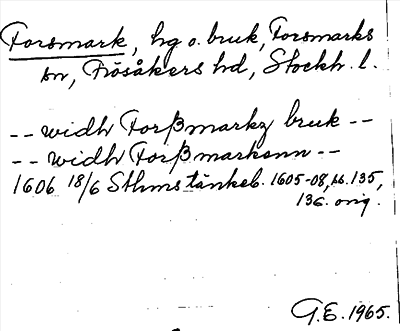 Forsmark, hg o. bruk, Forsmarks
sn, Frösåkers hd, Stockh. l.
-- widh Forßmarkz bruk --
-- widh Forßmarkonn --
1606 18/6 Sthms tänkeb. 1605-08, ss. 135,
136. orig.
G.E. 1965.